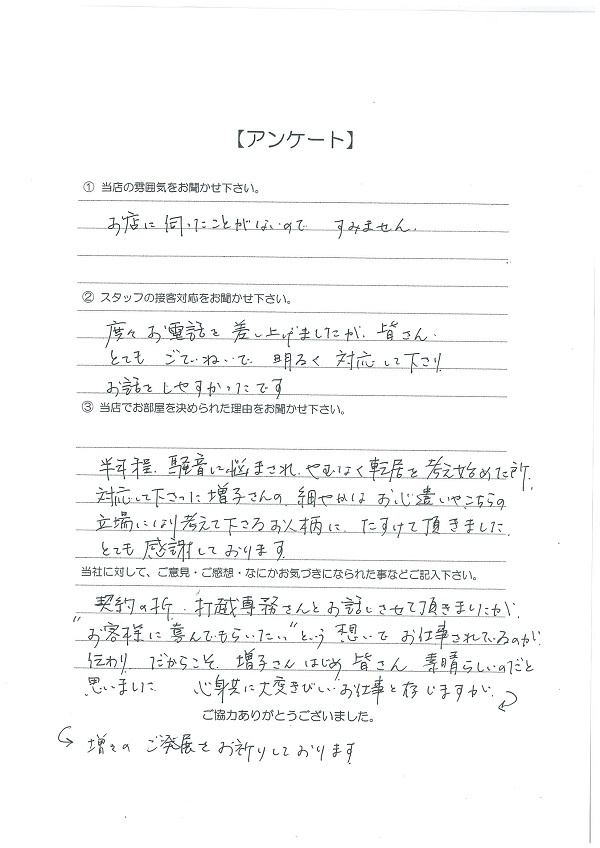 【アンケート】
① 当店の雰囲気をお聞かせ下さい。
お店に伺ったことがないので すみません。
② スタッフの接客対応をお聞かせ下さい。
度々お電話を差し上げましたが、皆さん
とても ごていねいで 明るく 対応して下さり
お話をしやすかったです
③ 当店でお部屋を決められた理由をお聞かせ下さい。
半年程、騒音に悩まされ、やむなく転居を考え始めた所、
対応して下さった増子さんの、細やかな お心遣いやこちらの
立場になり考えて下さるお人柄に、たすけて頂きました。
とても 感謝しております
当社に対して、ご意見・ご感想・なにかお気づきになられた事などご記入下さい。
契約の折、打蔵専務さんとお話しさせて頂きましたが、
"お客様に喜んでもらいたい"という 想いで お仕事されているのが
伝わり、だからこそ、増子さん はじめ 皆さん 素晴らしいのだと
思いました 心身共に大変きびしいお仕事と存じますが、
ご協力ありがとうございました。
増々の ご発展をお祈りしております